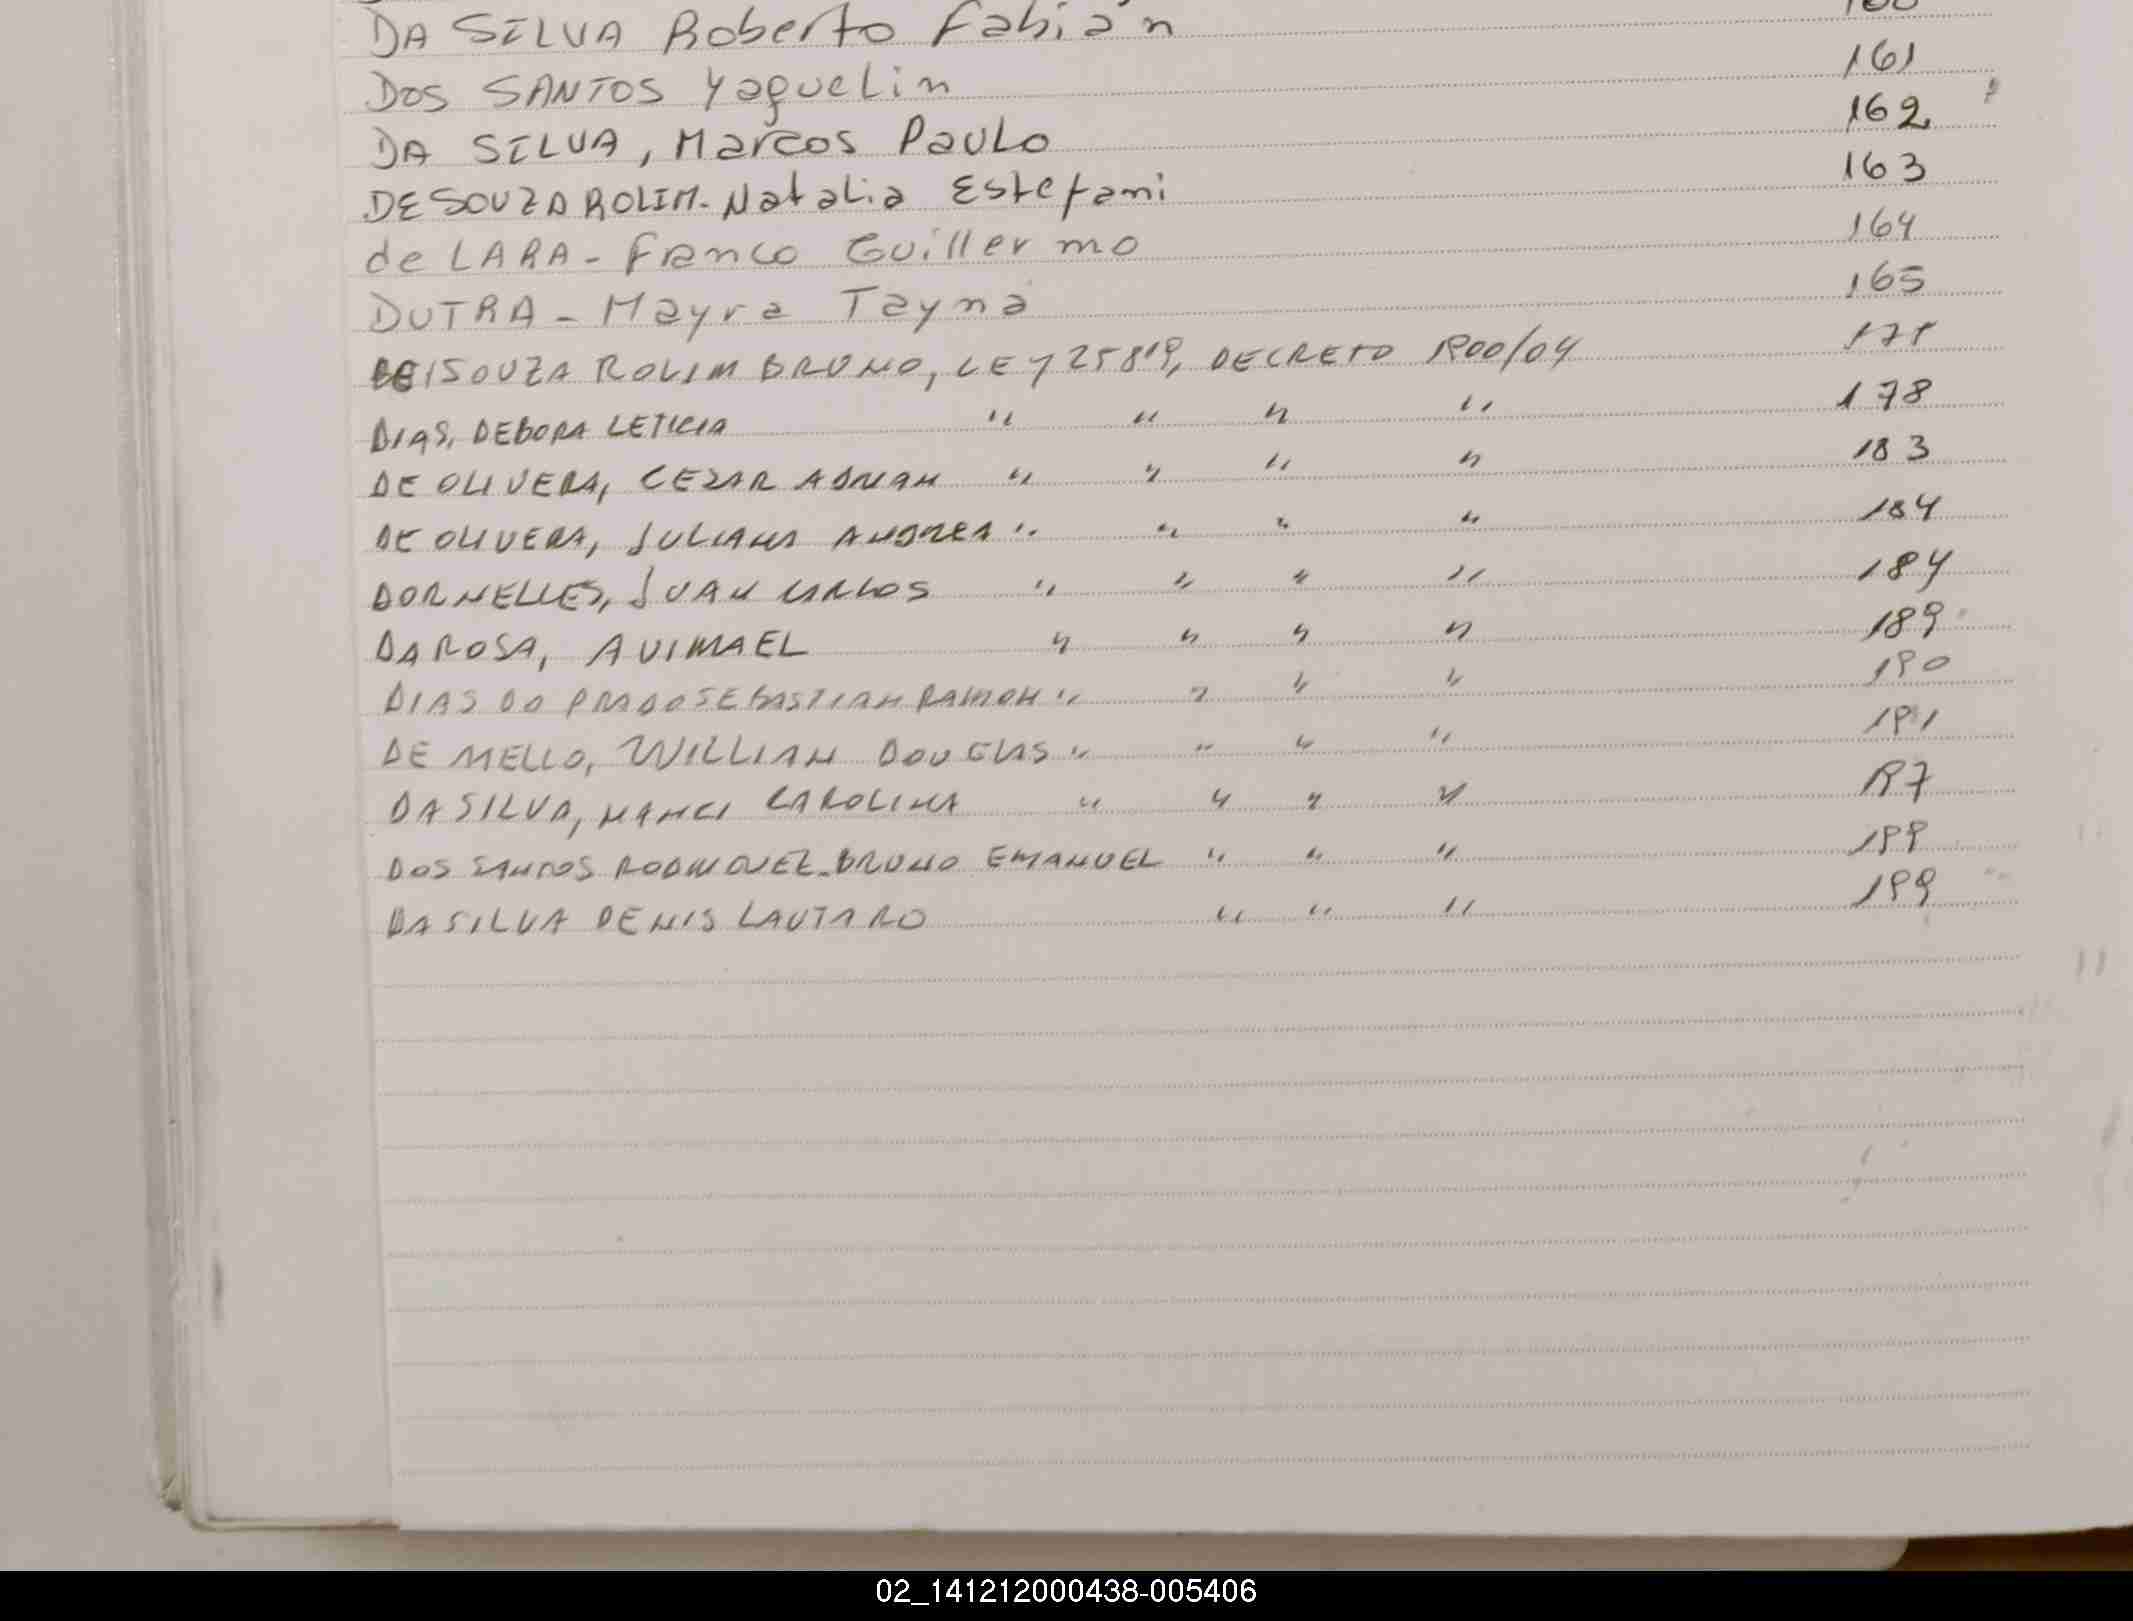 DA SILVA Roberto Fabián 160
DOS SANTOS Yaquelin 161
DA SILVA, Marcos Paulo 162
DE SOUZA ROLIM - Natalia Estefani 163
de LARA - Franco Guillermo 164
DUTRA - Mayra Tayna 165
DE SOUZA ROLIM BRUNO, LEY 25819, DECRETO 1900/04 171
DIAS, DEBORA LETICIA " " " " 178
DE OLIVERA, CEZAR ADRIAN " " " " 183
DE OLIVERA, JULIANA ANDREA " " " " 184
DORNELLES, JUAN CARLOS " " " " 184
DA ROSA, AVIMAEL " " " " 189
DIAS DO PRADO SEBASTIAN RAMON " " " " 190
DE MELLO, WILLIAN DOUGLAS " " " " 191
DA SILVA, NANCI CAROLINA " " " " 197
DOS SANTOS RODRIGUEZ - BRUNO EMANUEL " " " 199
DA SILVA DENIS LAUTARO " " " 199
02_141212000438-005406